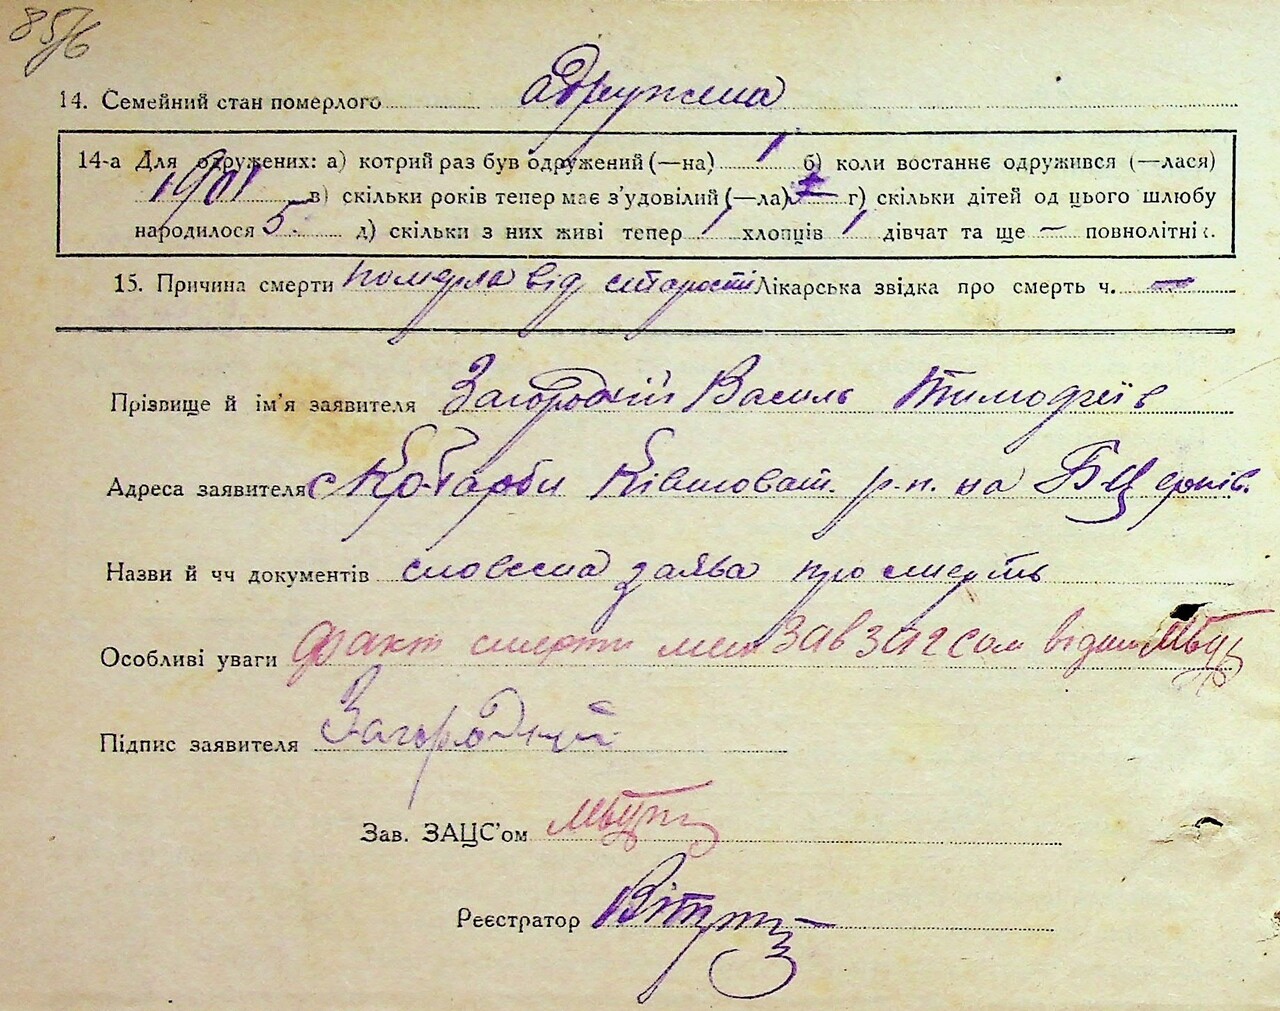 85/6
14. Семейний стан померлого адружена
14-а Для одружених: а) котрий раз був одружений (—на) 1 б) коли востаннє одружився (—лася)
1901 в) скільки років тепер має з'удовілий (—ла) г) скільки дітей од цього шлюбу
народилося 5. д) скільки з них живі тепер 1 хлопців 1 дівчат та ще — повнолітніх.
15. Причина смерти померла від старости Лікарська звідка про смерть ч. —
Прізвище й ім'я заявителя Загородній Василь Тимофеїв
Адреса заявителя с Кошарби Ківшоват. р-н. на БЦерків.
Назви й чч документів словесна заява про смерть
Особливі уваги Факт смерти мен Зав Загсом
Підпис заявителя Загородний
Зав. ЗАЦС'ом
Реєстратор